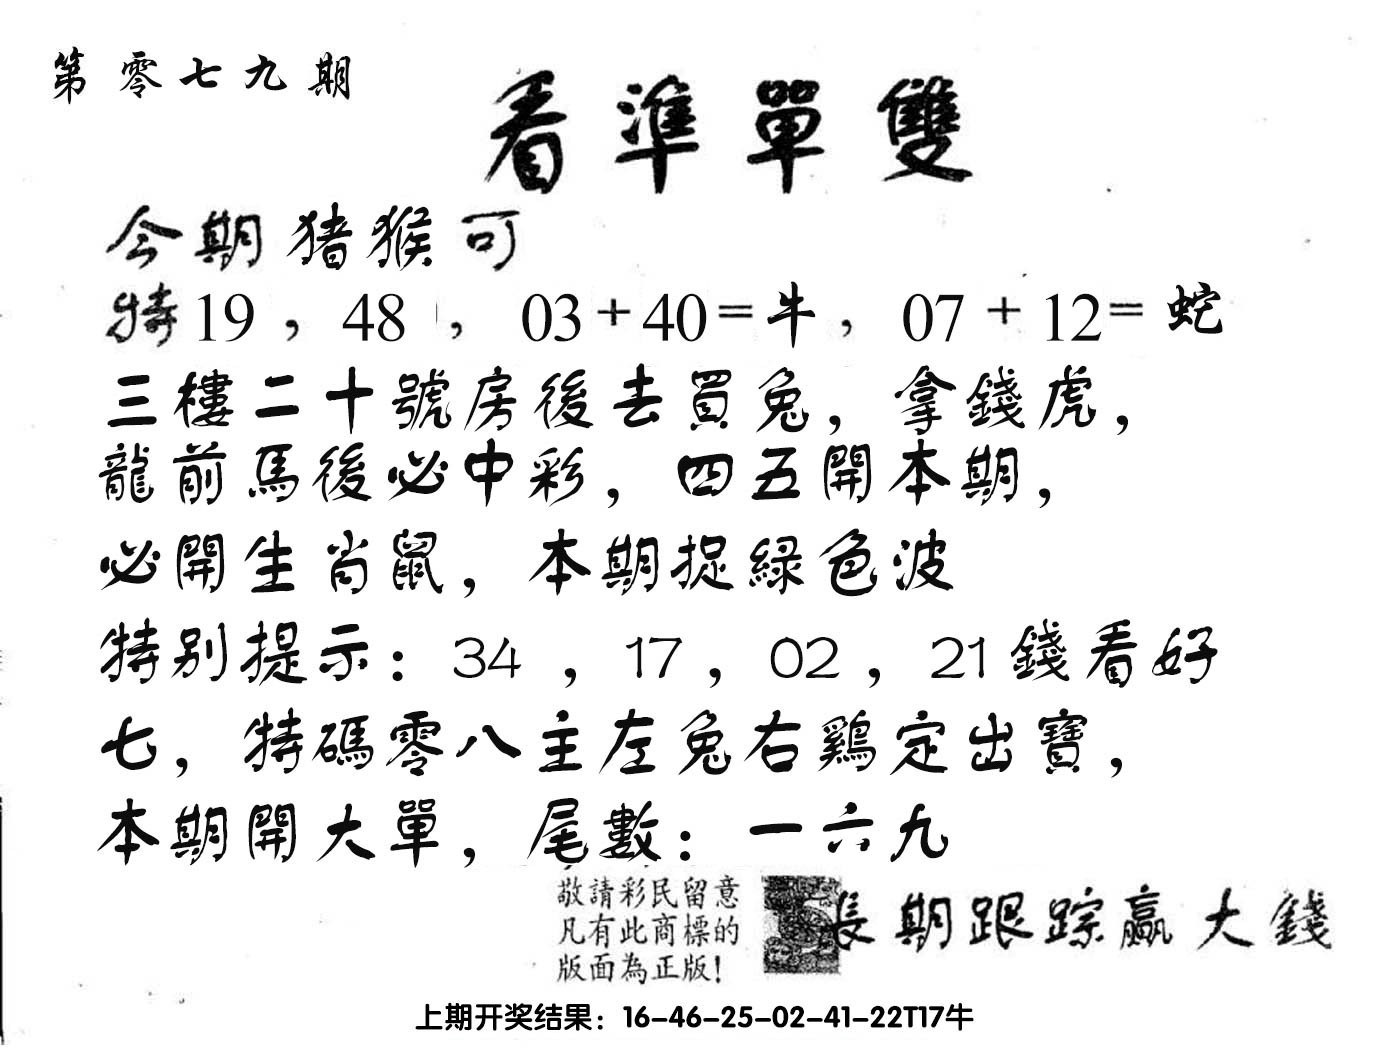 第零七九期
看準單雙
今期猪猴可
特19，48，03+40=牛，07+12=蛇
三樓二十號房後去買兔，拿錢虎，
龍前馬後必中彩，四五開本期，
必開生肖鼠，本期捉綠色波
特别提示：34，17，02，21錢看好
七，特碼零八主左兔右鷄定出寶，
本期開大單，尾數：一六九
敬請彩民留意
凡有此商標的
版面為正版！
長期跟踪贏大錢
上期开奖结果：16-46-25-02-41-22T17牛